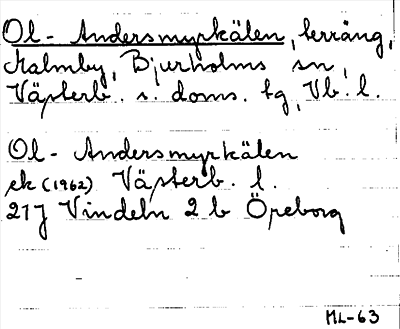 Ol-Andersmyrkälen, terräng,
Kalmby, Bjurholms sn,
Västerb. s. doms. tg, Vb. l.
Ol-Andersmyrkälen
ek (1962) Västerb. l.
21J Vindeln 2 b Öreborg
ML-63